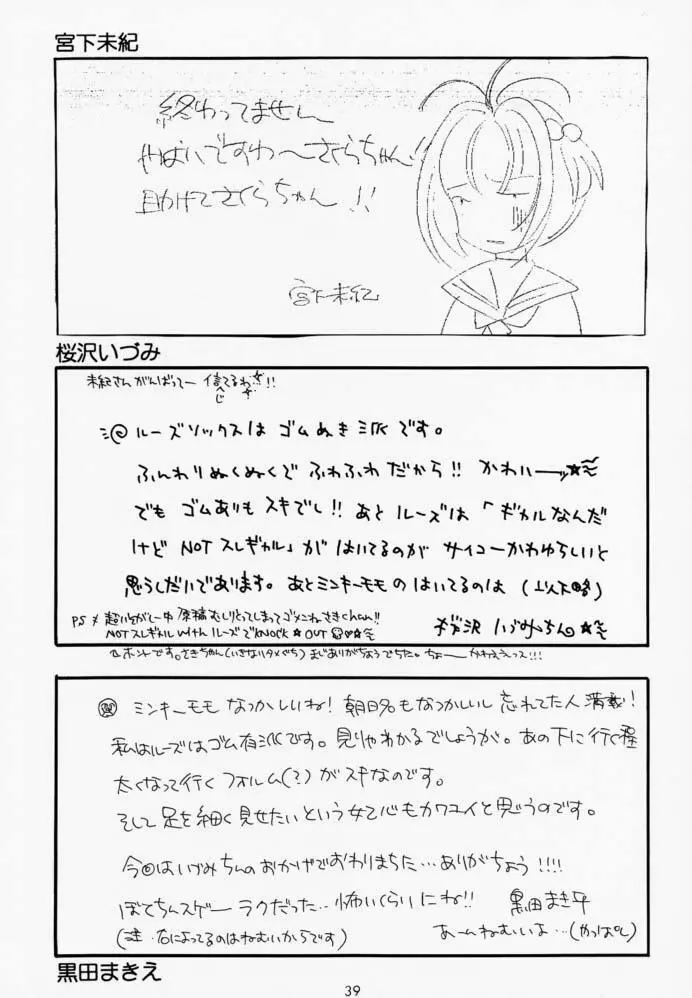 宮下未紀
終わってません
やばいですわ〜さくらちゃん!!
助けてさくらちゃん!!
宮下未紀
桜沢いづみ
未紀さんがんばってー 信じてるわ!!
ルーズソックスは ゴムぬき派です。
ふんわりぬくぬくで ふわふわだから!! かわいーっ☆
でも ゴムありも スキでし!! あと ルーズは 「ギャルなんだ
けど NOT スレギャル」が はいてるのが サイコーかわゆらしいと
思うしだいであります。 あとミンキーモモ のはいてるのは (以下略)
PS 超いそがしー中 原稿むしりとってしまってゴメンねさきchan!!
NOTスレギャル with ルーズでKNOCK☆OUT
桜沢 いづみちん☆
ホントです。さきちゃん(いきなりタメぐち) まじありがちょうでちた。ちょー かわええっス!!!
ミンキーモモ なつかしいね! 朝日名もなつかしいし 忘れてた人 満載!
私はルーズはゴム有派です。見りゃわかるでしょうが。あの下に行く程
太くなって行く フォルム(?)がスキなのです。
そして 足を細く見せたいという女心もカワユイと思うのです。
今回はいづみちんのおかげでおわりまちた…ありがちょう!!!!
ぼてちんスゲーラクだった…怖いくらいにね!!
黒田まき平
(注・右によってるのはねむいからです)
あームねむいよ…(やっぱし)
黒田まきえ
39